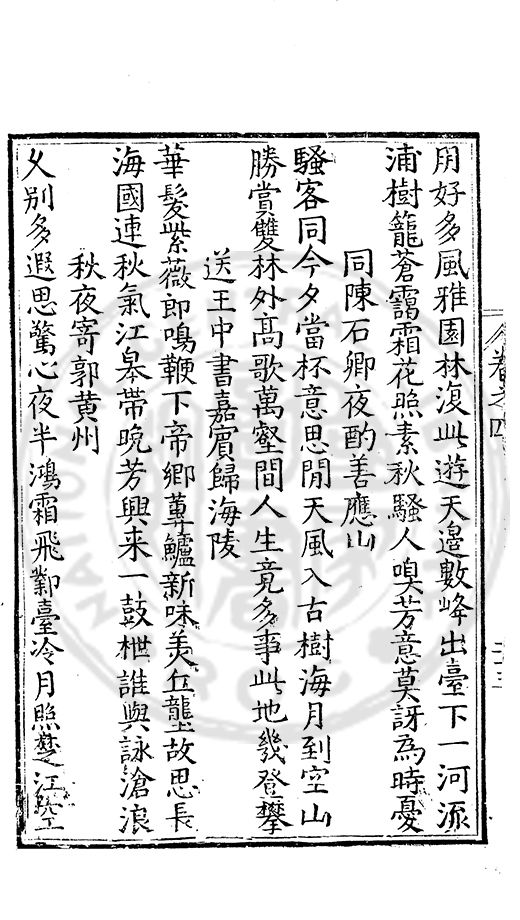 用好多風雅園林復此遊天邊數峰出臺下一河流
浦樹籠蒼靄霜花照素秋騷人嗅芳意莫訝為時憂
同陳石卿夜酌善應山
騷客同今夕當杯意思閒天風入古樹海月到空山
勝賞雙林外高歌萬壑間人生竟多事此地幾登攀
送王中書嘉賓歸海陵
華髮紫薇郎鳴鞭下帝鄉蓴鱸新味美丘壟故思長
海國連秋氣江皋帶晚芳興来一鼓枻誰與詠滄浪
秋夜寄郭黃州
久別多遐思驚心夜半鴻霜飛鄴臺冷月照楚江空
卷之四